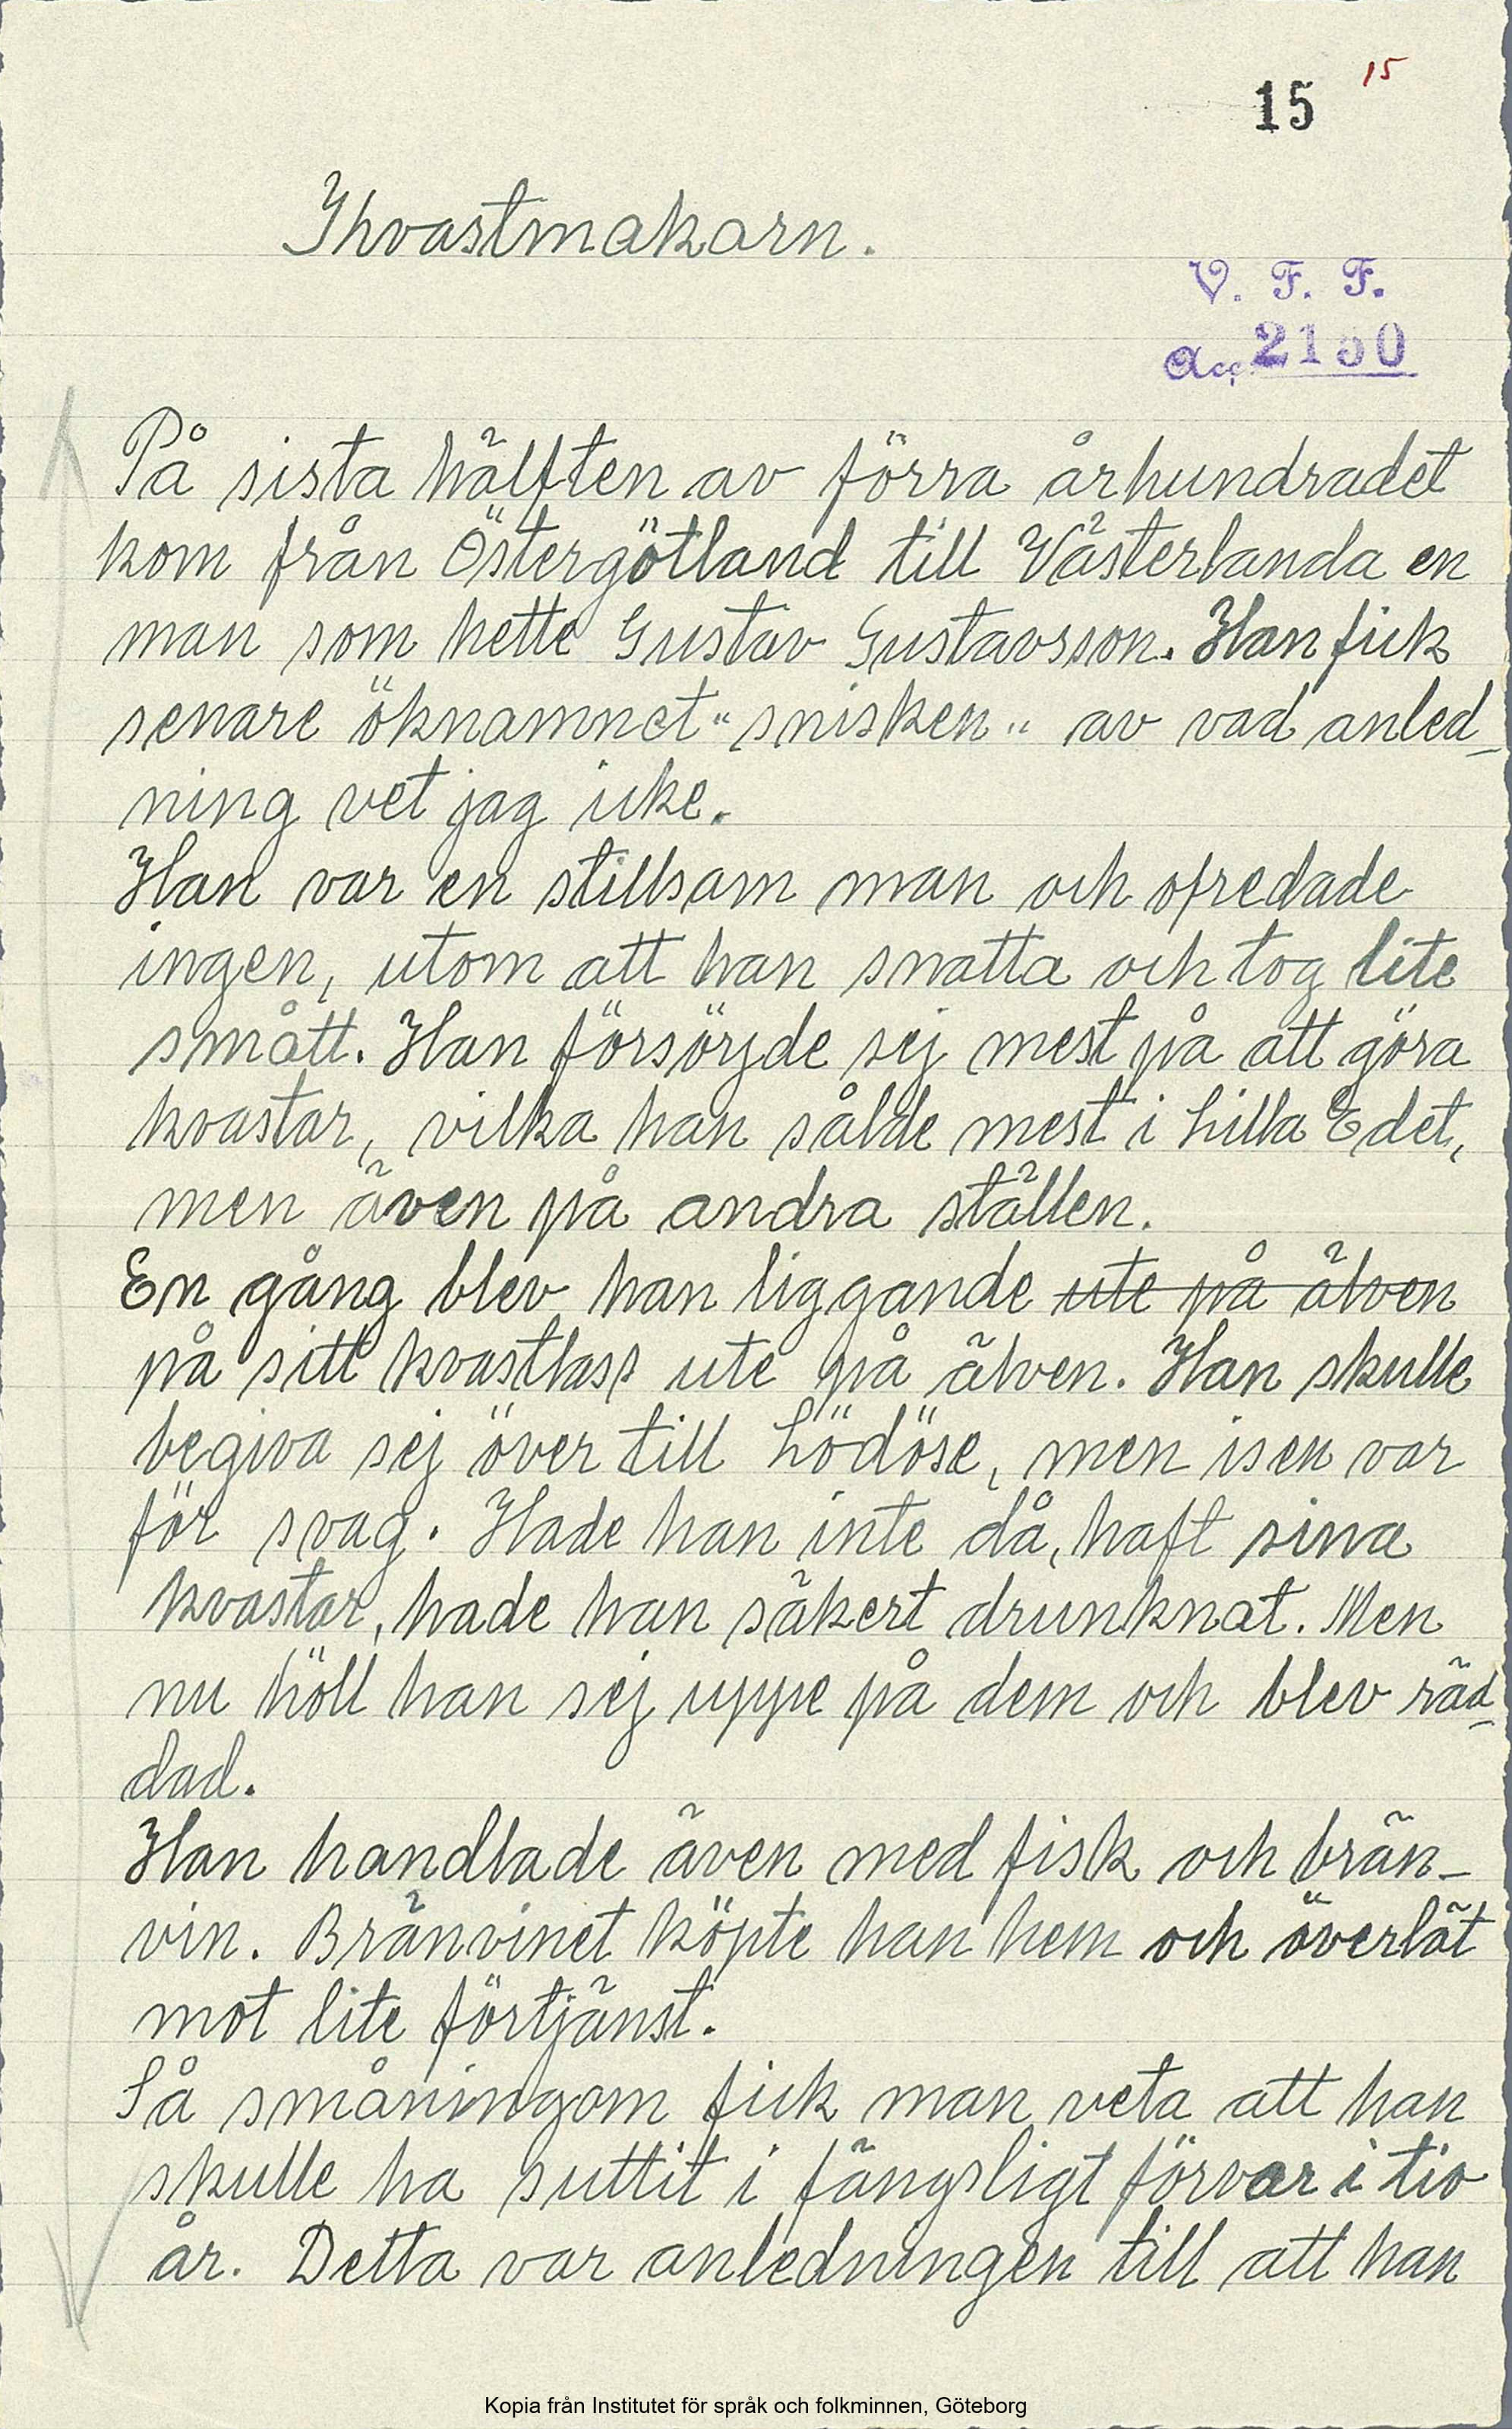 15 15
Khvastmakarn.
V. F. F.
Acc. 2150
På sista hälften av förra århundradet
kom från Östergötland till Västerlanda en
man som hette Gustav Gustavsson. Han fick
senare öknamnet "snisken" av vad anled-
ning vet jag icke.
Han var en stillsam man och ofredade
ingen, utom att han snatta och tog lite
smått. Han försörjde sej mest på att göra
kvastar, vilka han sålde mest i Lilla Edet,
men även på andra ställen.
En gång blev han liggande ute på älven
på sitt kvastlass ute på älven. Han skulle
begiva sej över till Lödöse, men isen var
för svag. Hade han inte då, haft sina
kvastar, hade han säkert drunknat. Men
nu höll han sej uppe på dem och blev räd-
dad.
Han handlade även med fisk och brän-
vin. Bränvinet köpte han hem och överlät
mot lite förtjänst.
Så småningom fick man veta att han
skulle ha suttit i fängsligt förvar i tio
år. Detta var anledningen till att han
Kopia från Institutet för språk och folkminnen, Göteborg